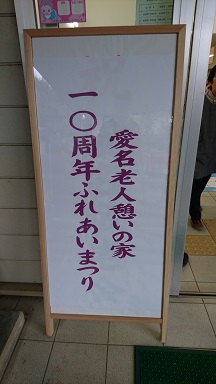 愛名老人憩いの家
一〇周年ふれあいまつり